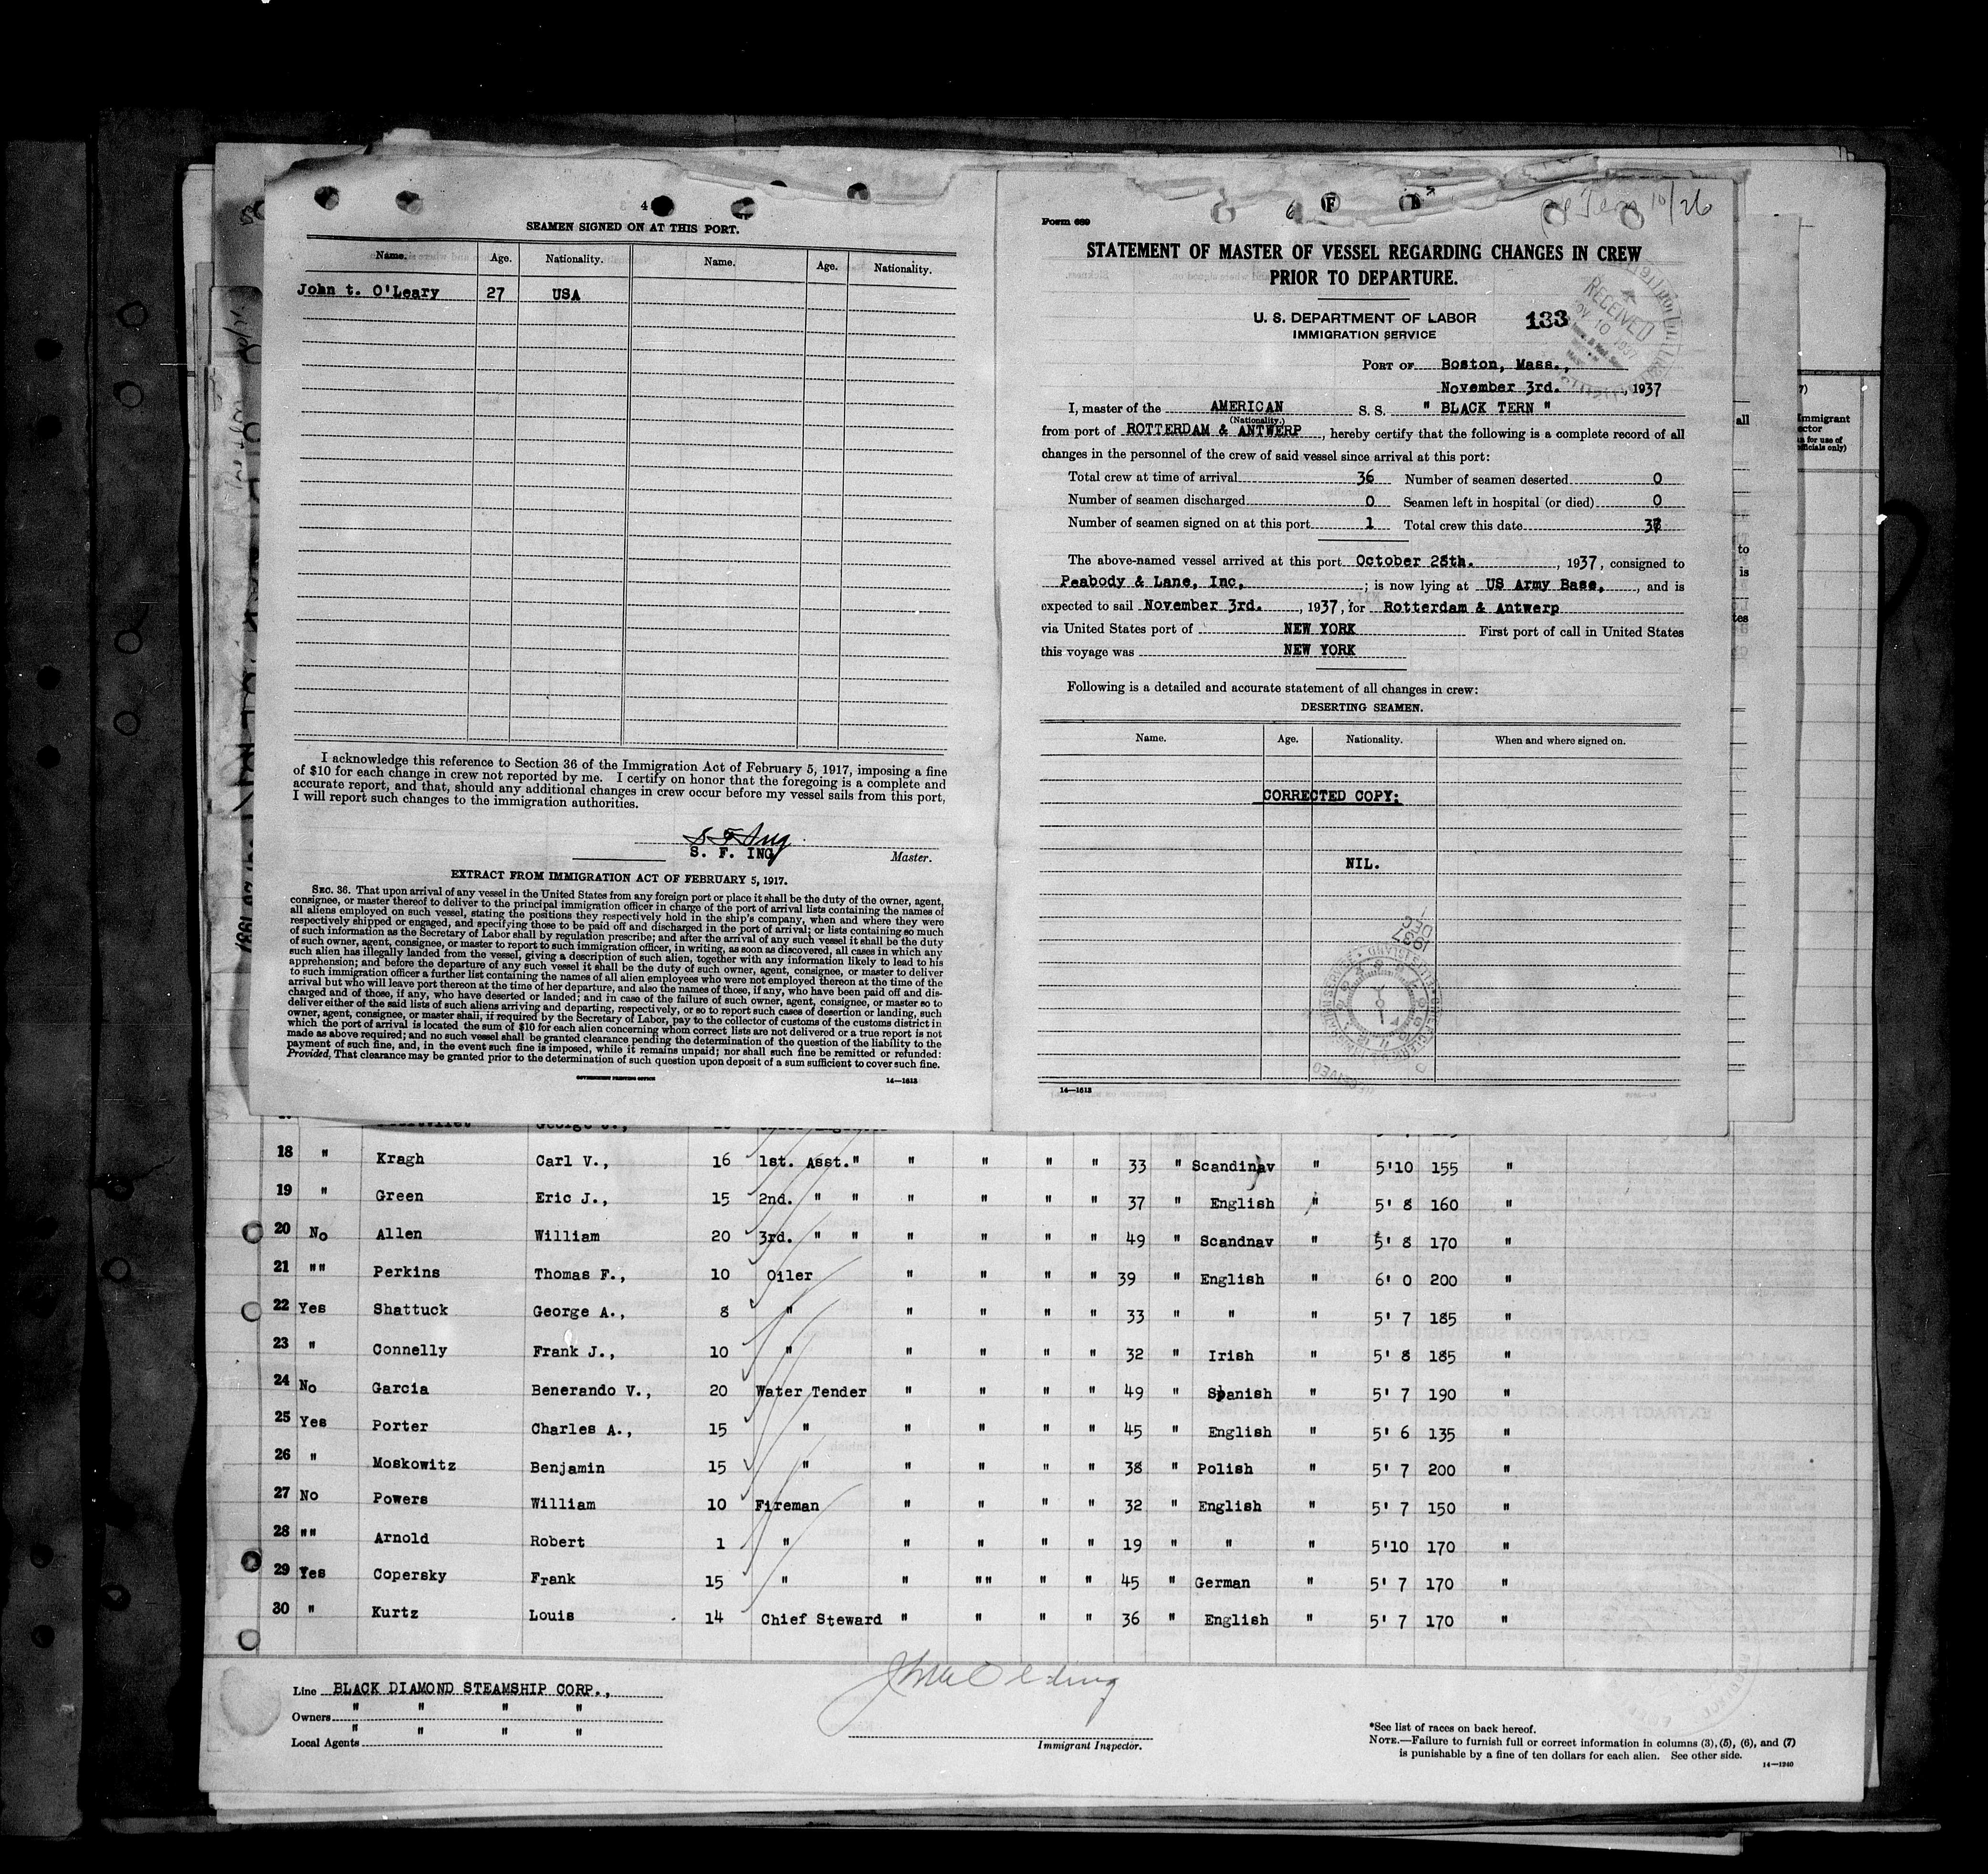 4
SEAMEN SIGNED ON AT THIS PORT.
Name. Age. Nationality. Name. Age. Nationality.
John t. O'Leary 27 USA
I acknowledge this reference to Section 36 of the Immigration Act of February 5, 1917, imposing a fine
of $10 for each change in crew not reported by me. I certify on honor that the foregoing is a complete and
accurate report, and that, should any additional changes in crew occur before my vessel sails from this port,
I will report such changes to the immigration authorities.
S F Ing
S. F. ING Master.
EXTRACT FROM IMMIGRATION ACT OF FEBRUARY 5, 1917.
SEC. 36. That upon arrival of any vessel in the United States from any foreign port or place it shall be the duty of the owner, agent,
consignee, or master thereof to deliver to the principal immigration officer in charge of the port of arrival lists containing the names of
all aliens employed on such vessel, stating the positions they respectively hold in the ship's company, when and where they were
respectively shipped or engaged, and specifying those to be paid off and discharged in the port of arrival; or lists containing so much
of such information as the Secretary of Labor shall by regulation prescribe; and after the arrival of any such vessel it shall be the duty
of such owner, agent, consignee, or master to report to such immigration officer, in writing, as soon as discovered, all cases in which any
such alien has illegally landed from the vessel, giving a description of such alien, together with any information likely to lead to his
apprehension; and before the departure of any such vessel it shall be the duty of such owner, agent, consignee, or master to deliver
to such immigration officer a further list containing the names of all alien employees who were not employed thereon at the time of the
arrival but who will leave port thereon at the time of her departure, and also the names of those, if any, who have been paid off and dis-
charged and of those, if any, who have deserted or landed; and in case of the failure of such owner, agent, consignee, or master so to
deliver either of the said lists of such aliens arriving and departing, respectively, or so to report such cases of desertion or landing, such
owner, agent, consignee, or master shall, if required by the Secretary of Labor, pay to the collector of customs of the customs district in
which the port of arrival is located the sum of $10 for each alien concerning whom correct lists are not delivered or a true report is not
made as above required; and no such vessel shall be granted clearance pending the determination of the question of the liability to the
payment of such fine, and, in the event such fine is imposed, while it remains unpaid; nor shall such fine be remitted or refunded:
Provided, That clearance may be granted prior to the determination of such question upon deposit of a sum sufficient to cover such fine.
GOVERNMENT PRINTING OFFICE 14—1613
Form 689
10/26
STATEMENT OF MASTER OF VESSEL REGARDING CHANGES IN CREW
PRIOR TO DEPARTURE.
U. S. DEPARTMENT OF LABOR
IMMIGRATION SERVICE
133
RECEIVED
NOV 10 1937
PORT OF Boston, Mass.,
November 3rd. , 1937
I, master of the AMERICAN S. S. " BLACK TERN "
(Nationality.)
from port of ROTTERDAM & ANTWERP , hereby certify that the following is a complete record of all
changes in the personnel of the crew of said vessel since arrival at this port:
Total crew at time of arrival 36 Number of seamen deserted 0
Number of seamen discharged 0 Seamen left in hospital (or died) 0
Number of seamen signed on at this port 1 Total crew this date 37
The above-named vessel arrived at this port October 28th. , 1937, consigned to
Peabody & Lane, Inc, ; is now lying at US Army Base, , and is
expected to sail November 3rd. , 1937, for Rotterdam & Antwerp
via United States port of NEW YORK First port of call in United States
this voyage was NEW YORK
Following is a detailed and accurate statement of all changes in crew:
DESERTING SEAMEN.
Name. Age. Nationality. When and where signed on.
CORRECTED COPY:
NIL.
1937
DEC
RECEIVED
14—1613
all
to
is
tes
7)
Immigrant
officials only)
18 " Kragh Carl V., 16 1st. Asst." " " " " 33 " Scandinav " 5'10 155 "
19 " Green Eric J., 15 2nd. " " " " " " 37 " English " 5' 8 160 "
20 No Allen William 20 3rd. " " " " " " 49 " Scandnav " 5' 8 170 "
21 "" Perkins Thomas F., 10 Oiler " " " " 39 " English " 6' 0 200 "
22 Yes Shattuck George A., 8 " " " " " 33 " " " 5' 7 185 "
23 " Connelly Frank J., 10 " " " " " 32 " Irish " 5' 8 185 "
24 No Garcia Benerando V., 20 Water Tender " " " " 49 " Spanish " 5' 7 190 "
25 Yes Porter Charles A., 15 " " " " " 45 " English " 5' 6 135 "
26 " Moskowitz Benjamin 15 " " " " " 38 " Polish " 5' 7 200 "
27 No Powers William 10 Fireman " " " " 32 " English " 5' 7 150 "
28 "" Arnold Robert 1 " " " " " 19 " " " 5'10 170 "
29 Yes Copersky Frank 15 " " "" " " 45 " German " 5' 7 170 "
30 " Kurtz Louis 14 Chief Steward " " " " 36 " English " 5' 7 170 "
Line BLACK DIAMOND STEAMSHIP CORP.,
Owners " " " "
Local Agents " " " "
Immigrant Inspector.
*See list of races on back hereof.
NOTE.—Failure to furnish full or correct information in columns (3), (5), (6), and (7)
is punishable by a fine of ten dollars for each alien. See other side.
14—1240